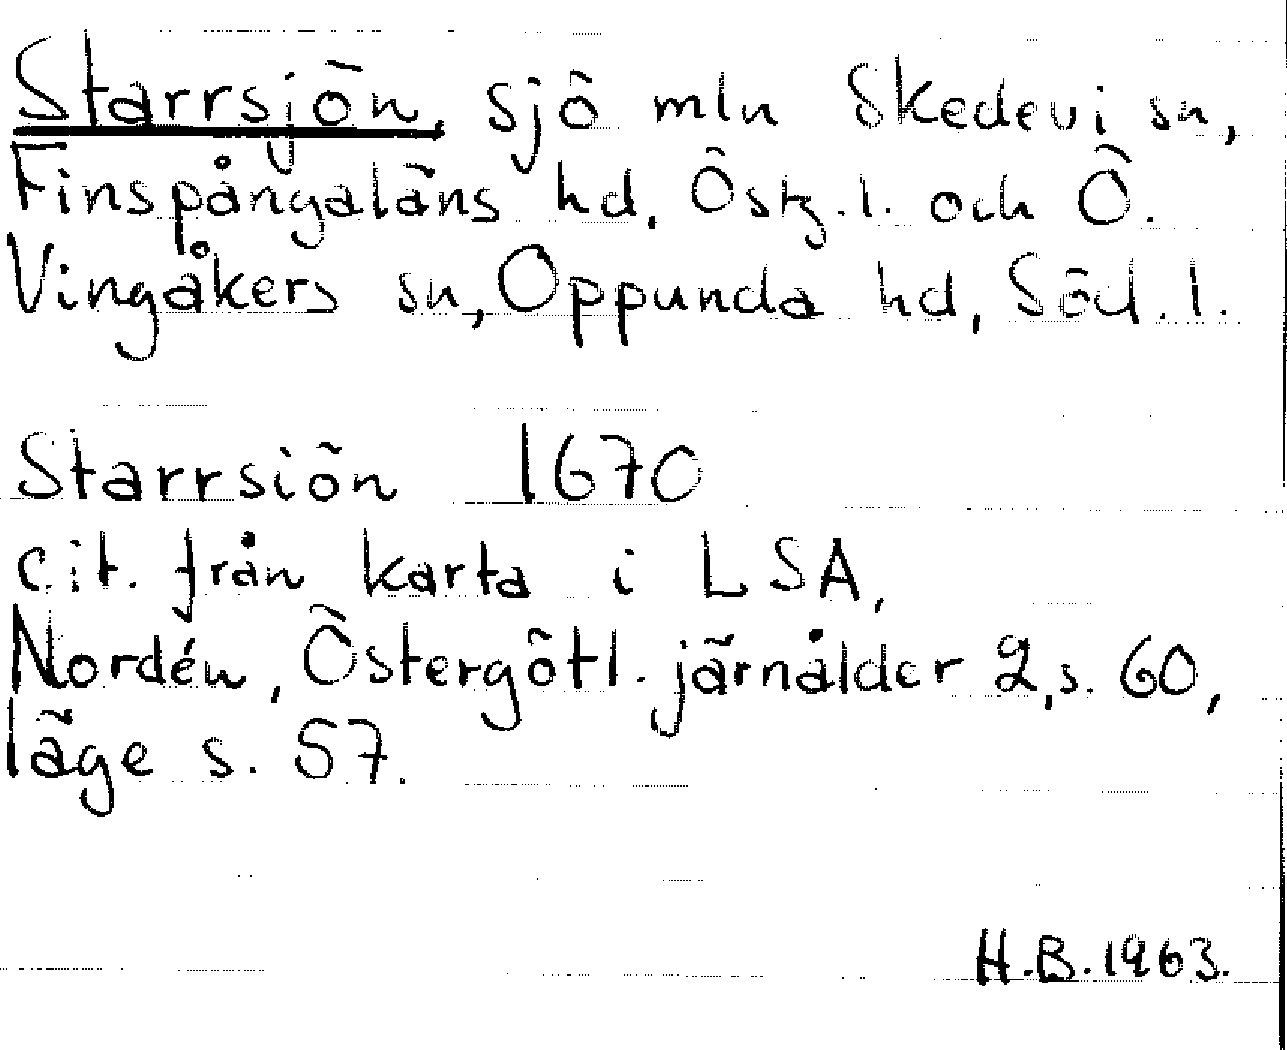 Starrsjön, sjö mln Skedevi sn,
Finspångaläns hd, Östg.l. och Ö.
Vingåkers sn, Oppunda hd, Söd.l.
Starrsiön 1670
cit. från karta i LSA,
Nordén, Östergötl. järnålder 2, s. 60,
läge s. 57.
H.B. 1963.